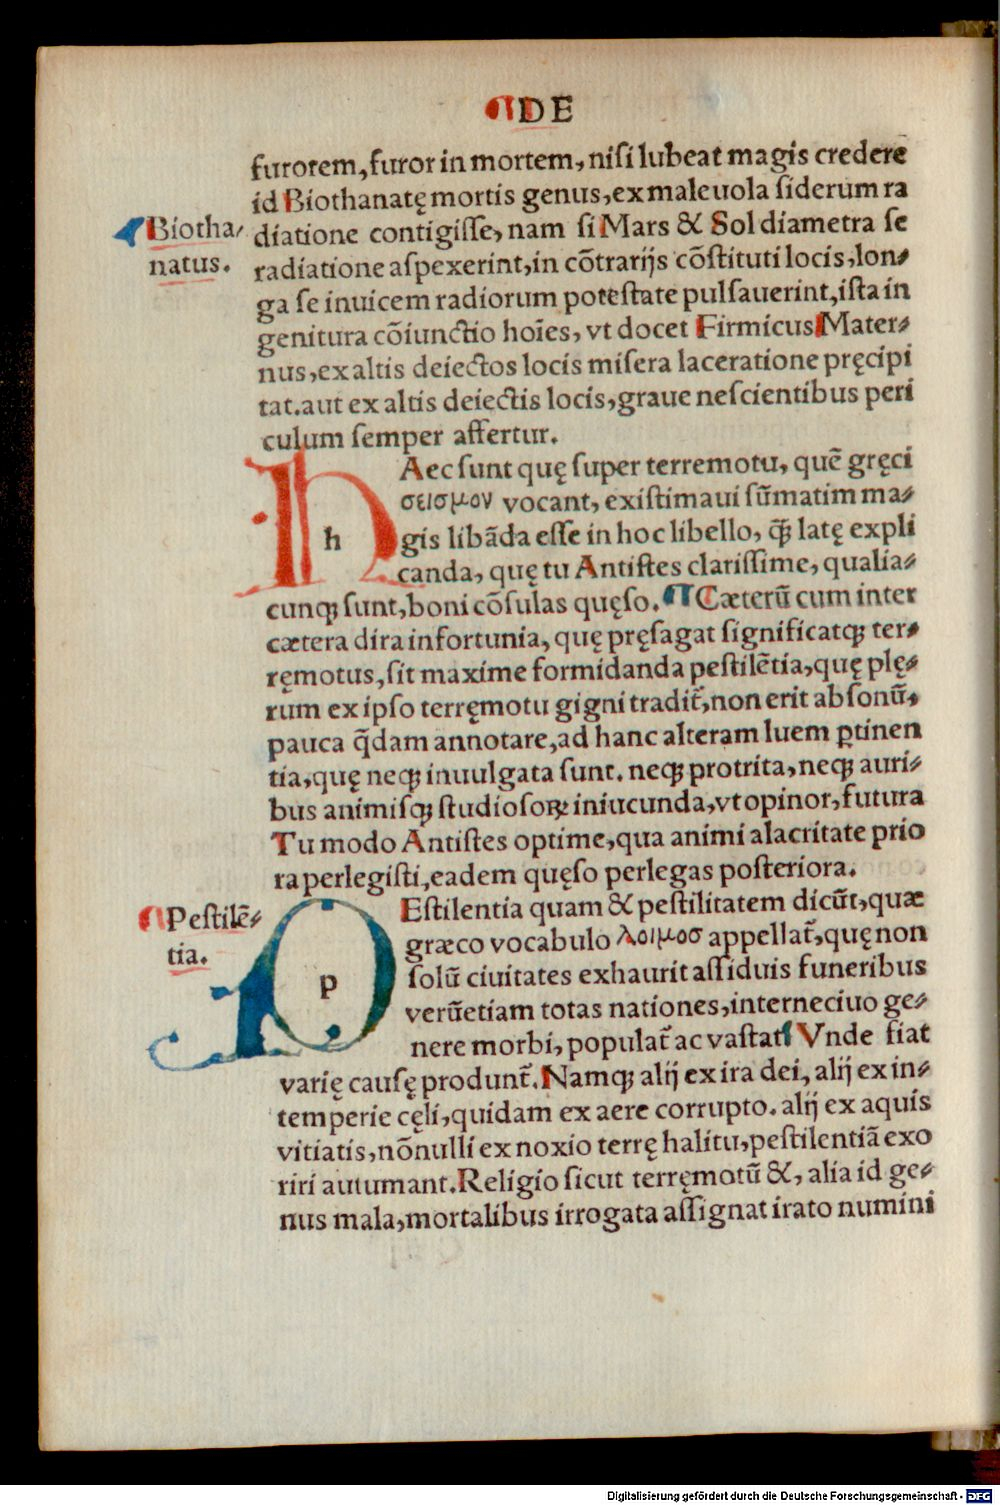 ¶DE
furorem,furor in mortem, nisi lubeat magis credere
id Biothanatę mortis genus, ex maleuola siderum ra
Biotha/
natus.
diatione contigisse, nam si Mars & Sol diametra se
radiatione aspexerint,in cõtrarijs cõstituti locis,lon/
ga se inuicem radiorum potestate pulsauerint,ista in
genitura cõiunctio hoĩes, vt docet Firmicus Mater/
nus,ex altis deiectos locis misera laceratione pręcipi
tat.aut ex altis deiectis locis,graue nescientibus peri
culum semper affertur.
h
Aec sunt quę super terremotu, quẽ gręci
σεισμον vocant, existimaui sũmatim ma/
gis libãda esse in hoc libello, q̃ꝫ latę expli
canda, quę tu Antistes clarissime, qualia/
cunqꝫ sunt,boni cõsulas quęso.¶Cæterũ cum inter
cætera dira infortunia, quę pręsagat significatqꝫ ter/
ręmotus,sit maxime formidanda pestilẽtia,quę plę/
rum ex ipso terręmotu gigni tradit̃,non erit absonũ,
pauca q̃dam annotare,ad hanc alteram luem ꝑtinen
tia,quę neqꝫ inuulgata sunt. neqꝫ protrita,neqꝫ auri/
bus animisqꝫ studiosoꝝ iniucunda,vt opinor,futura
Tu modo Antistes optime,qua animi alacritate prio
ra perlegisti,eadem quęso perlegas posteriora.
¶Pestilẽ/
tia.
p
Estilentia quam & pestilitatem dicũt,quæ
græco vocabulo λοιμοσ appellat̃,quę non
solũ ciuitates exhaurit assiduis funeribus
verũetiam totas nationes,interneciuo ge/
nere morbi, populat̃ ac vastat Vnde fiat
varię causę produnt̃.Namqꝫ alij ex ira dei, alij ex in/
temperie cęli,quidam ex aere corrupto. alij ex aquis
vitiatis,nõnulli ex noxio terrę halitu,pestilentiã exo
riri autumant.Religio sicut terręmotũ &, alia id ge/
nus mala,mortalibus irrogata assignat irato numini
Digitalisierung gefördert durch die Deutsche Forschungsgemeinschaft - DFG